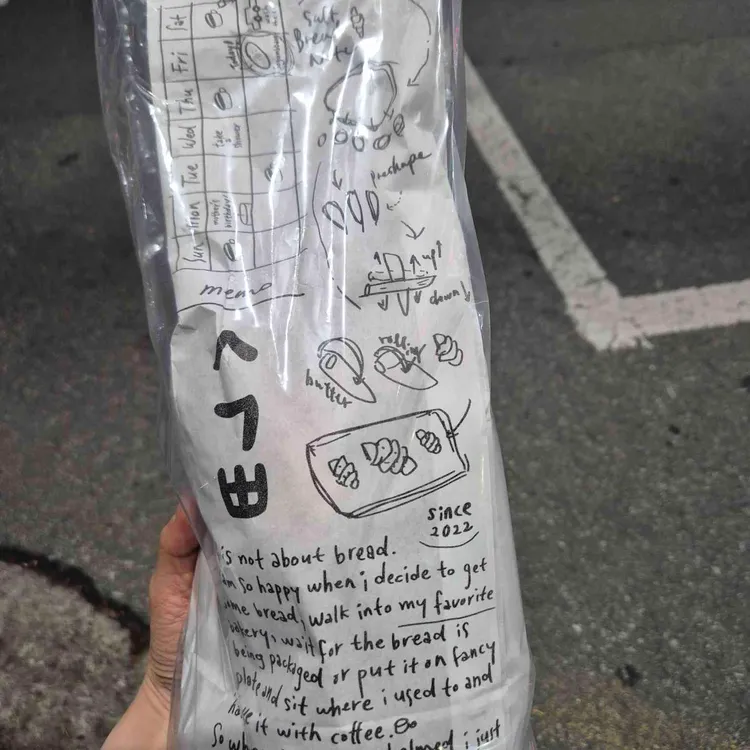 Sun Mon Tue Wed Thu Fri Sat
mother's
birthday!
take
a
shower
today!
memo
Salt
Bread
preshape
up!
down
butter
rolling
since
2022
is not about bread.
so happy when i decide to get
bread, walk into my favorite
wait for the bread is
being packaged or put it on fancy
plate and sit where i used to and
have it with coffee.
So
i just